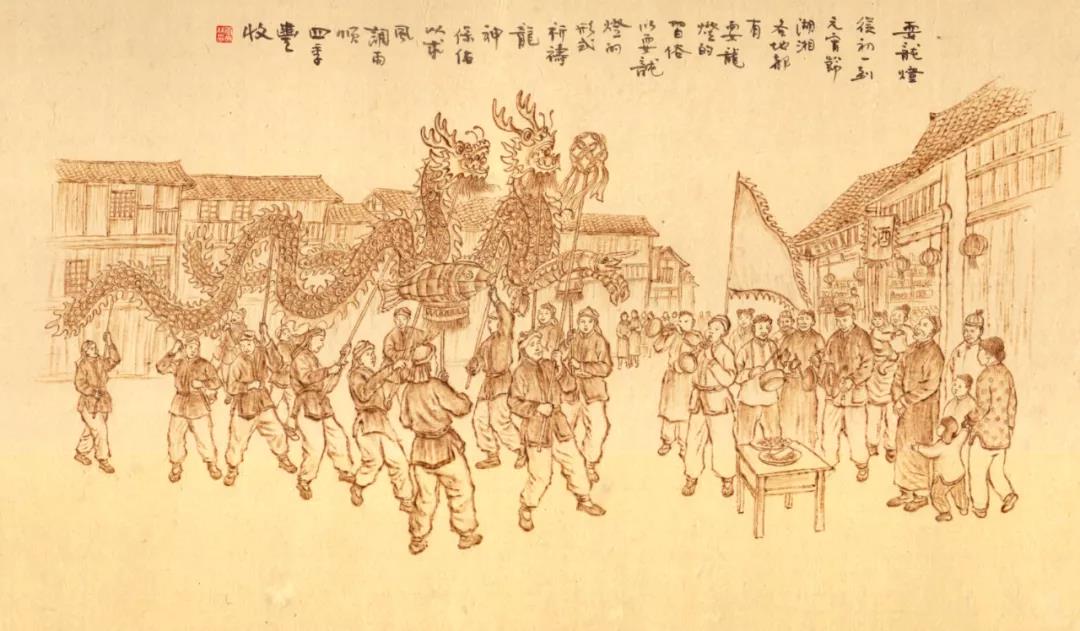 耍龍燈
從初一到
元宵節
湖湘
各地都
有
耍龍
燈的
習俗
以耍龍
燈的
形式
祈禱
龍
神
保佑
以求
風
調雨
順
四季
豐
收
酒